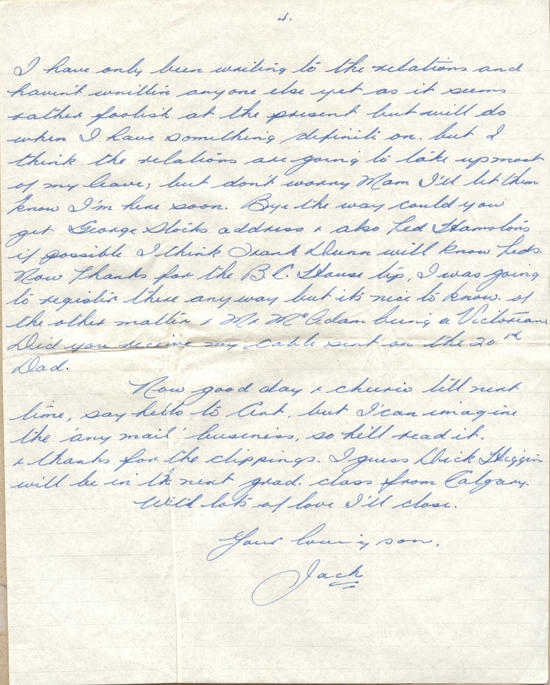 4.
I have only been writing to the relations and
haven't written anyone else yet as it seems
rather foolish at the present but will do
when I have something definite on. but I
think the relations are going to take up most
of my leave, but don't worry Mam I'll let them
know I'm here soon. Bye the way could you
get George Stocks address & also Ted Hamptons
if possible I think Frank Dunn will know Teds.
Now thanks for the B.C. House tip, I was going
to register there any way but its nice to know. of
the other matter & Mr McAdam being a Victorian
Did you receive my cable sent on the 20th
Dad.
Now good day & cheerio till next
time, say hello to Art. but I can imagine
the 'any mail' business, so he'll read it.
& thanks for the clippings. I guess Dick Higgin
will be in the next grad. class from Calgary.
With lots of love I'll close.
Your loving son,
Jack